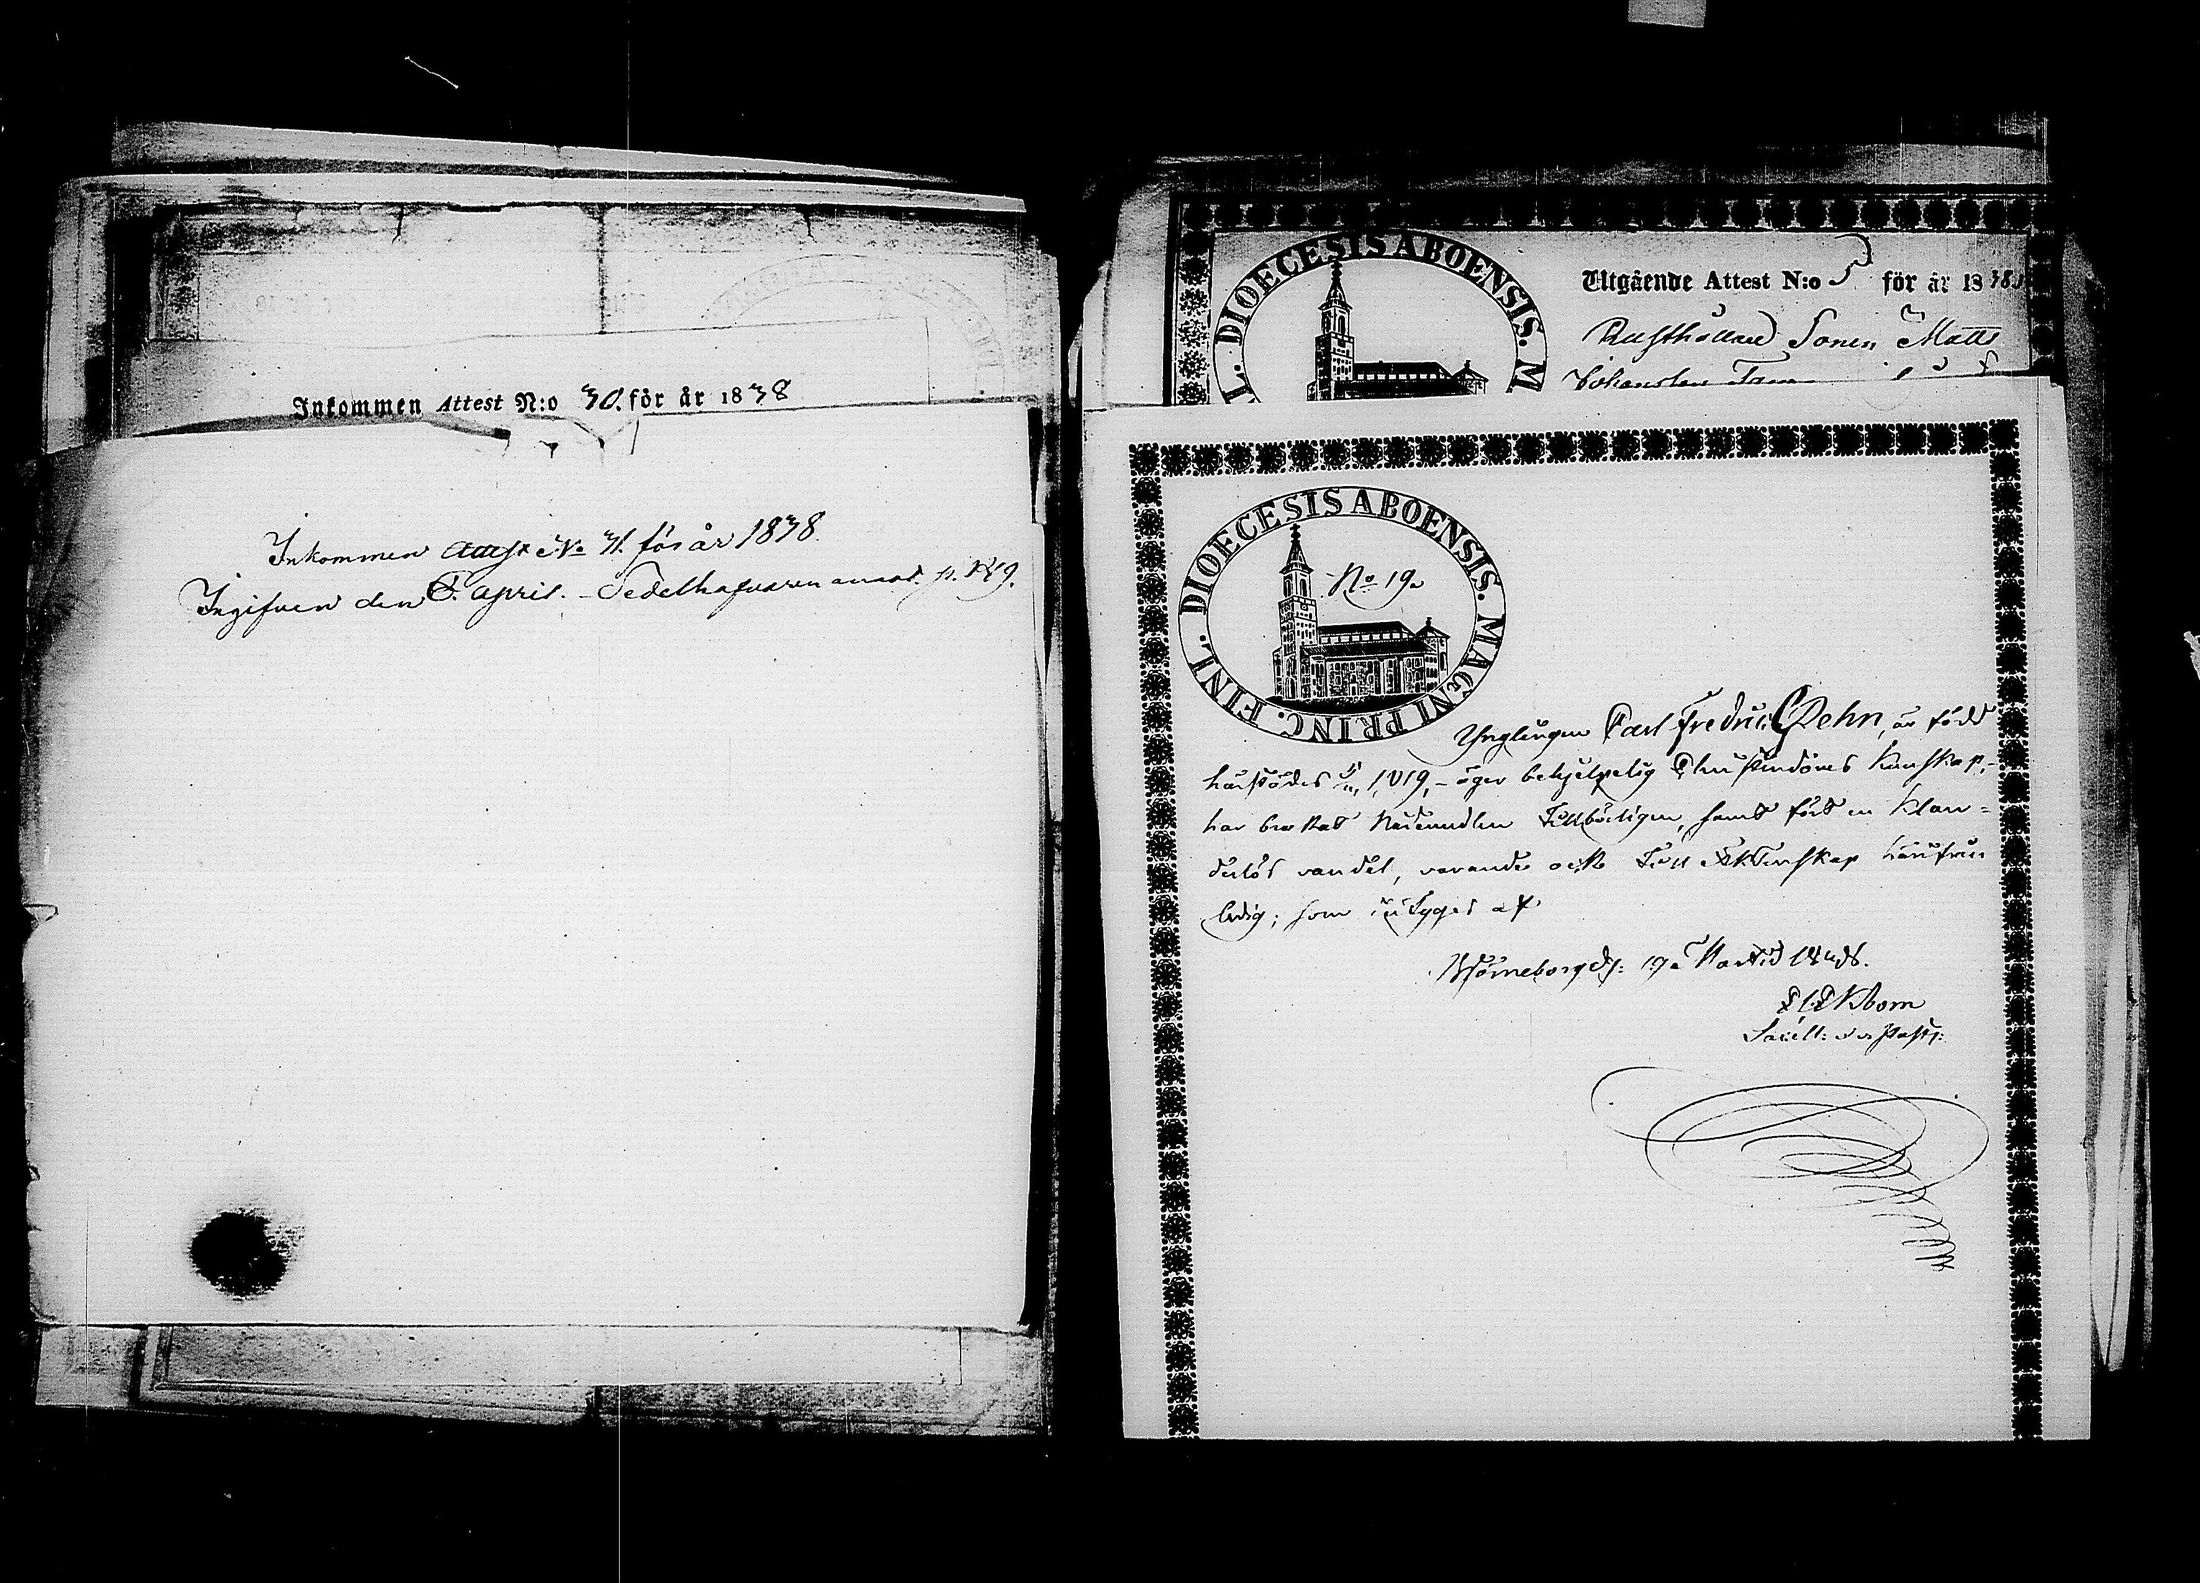 Inkommen Attest N:o 30. för år 1838
Inkommen attest No 31. för år 1838.
Ingifven den 6. april. - Sedelhafvaren annot. p. 179.
DIOECESIS ABOENSIS. M
L.
Utgående Attest N:o 5 för år 1838
Rusthållare Sonen Matts
Johansson
DIOECESIS ABOENSIS. MAGNI PRINC. FINL.
No 19.
Ynglingen Carl Fredric Rehn, är född
härstädes 1819, - äger behjelpelig Christendoms Kunskap,
har begått Nattvarden, samt fört en klan=
derlös vandel, varande ock till Ektenskap härifrån
ledig; som intygas af
Björneborg d: 19 Martii 1838.